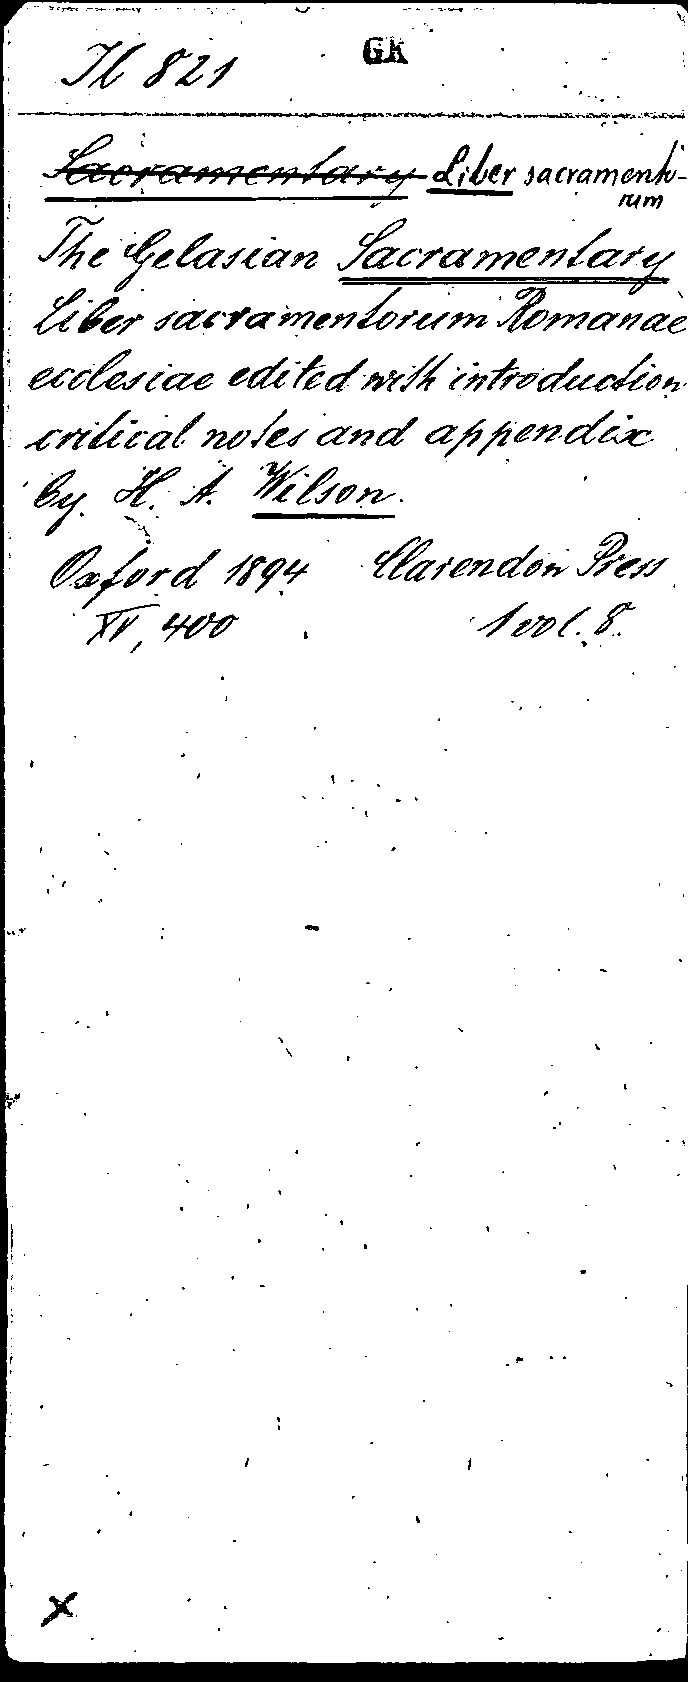 Il 821 GK
Sacramentary Liber sacramento-
rum
The Gelasian Sacramentary
Liber sacramentorum Romanae
ecclesiae edited with introduction
critical notes and appendix
by. H. A. Wilson.
Oxford 1894 Clarendon Press
XV, 400 1 vol. 8.
x